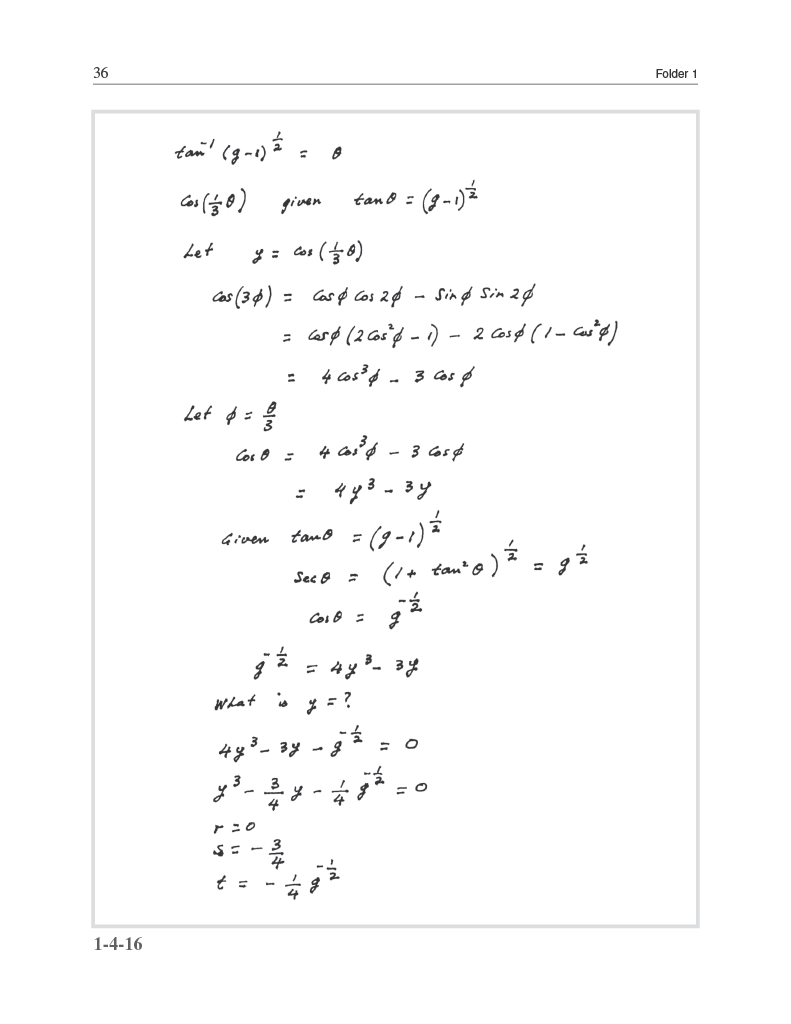 36 Folder 1
tan⁻¹ (g-1)^½ = θ
Cos(⅓ θ) given tan θ = (g-1)^½
Let y = cos (⅓ θ)
Cos(3ϕ) = Cos ϕ Cos 2ϕ - Sin ϕ Sin 2ϕ
= Cos ϕ (2 Cos²ϕ - 1) - 2 Cos ϕ (1 - Cos²ϕ)
= 4 Cos³ϕ - 3 Cos ϕ
Let ϕ = θ/3
Cos θ = 4 Cos³ϕ - 3 Cos ϕ
= 4y³ - 3y
Given tan θ = (g-1)^½
Sec θ = (1 + tan²θ)^½ = g^½
Cos θ = g^-½
g^-½ = 4y³ - 3y
What is y = ?
4y³ - 3y - g^-½ = 0
y³ - ¾ y - ¼ g^-½ = 0
r = 0
s = - ¾
t = - ¼ g^-½
1-4-16